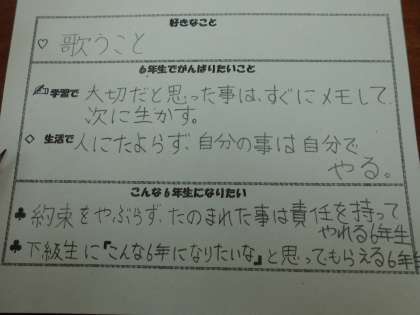 好きなこと
♡ 歌うこと
6年生でがんばりたいこと
学習で 大切だと思った事は、すぐにメモして
次に生かす。
◇ 生活で 人にたよらず、自分の事は自分で
やる。
こんな6年生になりたい
♣ 約束をやぶらず、たのまれた事は責任を持って
やれる6年生
♣ 下級生に『こんな6年になりたいな』と思ってもらえる6年